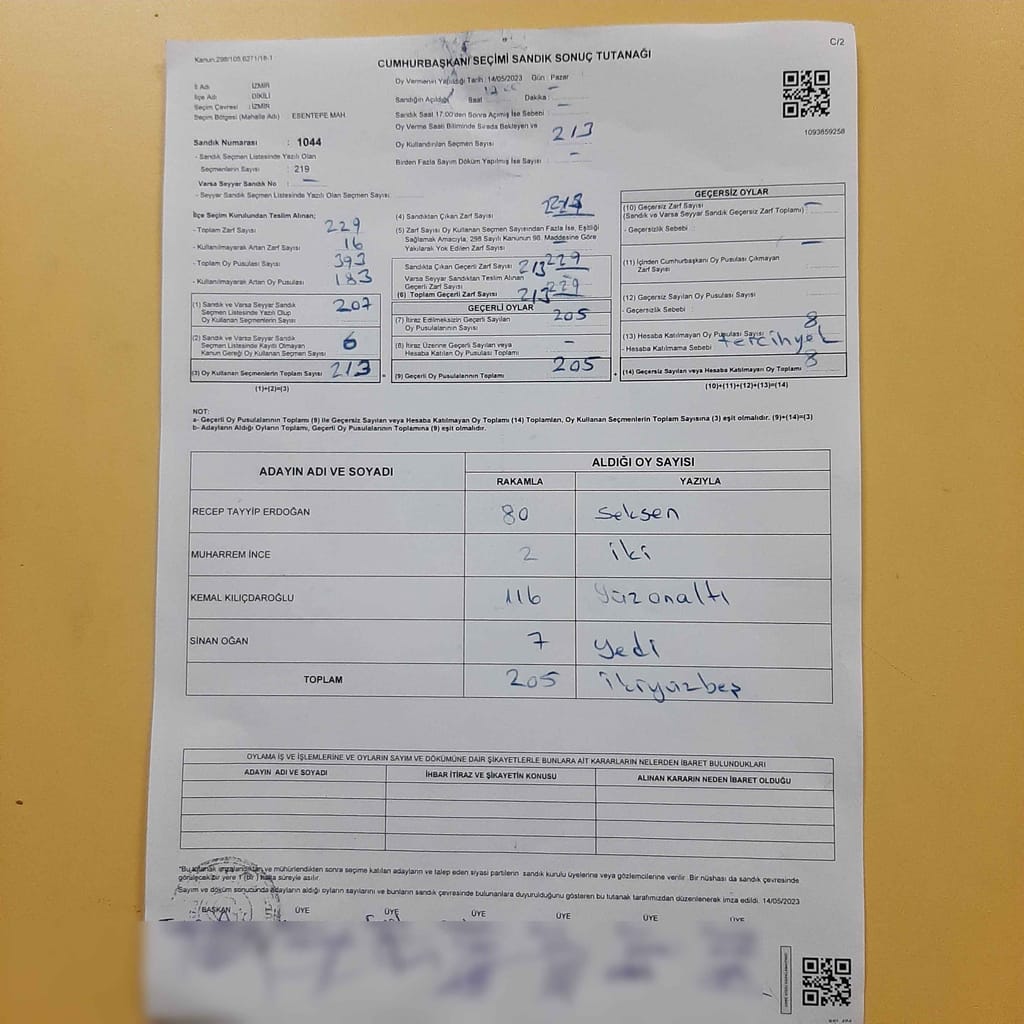 Kanun:298/105,6271/18-1
C/2
CUMHURBAŞKANI SEÇİMİ SANDIK SONUÇ TUTANAĞI
İl Adı İZMİR
İlçe Adı DİKİLİ
Seçim Çevresi : İZMİR
Seçim Bölgesi (Mahalle Adı) ESENTEPE MAH.
Oy Vermenin Yapıldığı Tarih :14/05/2023 Gün : Pazar
Sandığın Açıldığı Saat Dakika :
Sandık Saat 17:00'den Sonra Açılmış İse Sebebi :
Oy Verme Saati Bitiminde Sırada Bekleyen ve
Oy Kullandırılan Seçmen Sayısı 213
Birden Fazla Sayım Döküm Yapılmış İse Sayısı : -
1093859258
Sandık Numarası : 1044
- Sandık Seçmen Listesinde Yazılı Olan
Seçmenlerin Sayısı : 219
Varsa Seyyar Sandık No : -
- Seyyar Sandık Seçmen Listesinde Yazılı Olan Seçmen Sayısı
İlçe Seçim Kurulundan Teslim Alınan;
- Toplam Zarf Sayısı 229
- Kullanılmayarak Artan Zarf Sayısı 16
- Toplam Oy Pusulası Sayısı 393
- Kullanılmayarak Artan Oy Pusulası 183
(1) Sandık ve Varsa Seyyar Sandık
Seçmen Listesinde Yazılı Olup
Oy Kullanan Seçmenlerin Sayısı 207
(2) Sandık ve Varsa Seyyar Sandık
Seçmen Listesinde Kayıtlı Olmayan
Kanun Gereği Oy Kullanan Seçmen Sayısı 6
(3) Oy Kullanan Seçmenlerin Toplam Sayısı 213
(1)+(2)=(3)
(4) Sandıktan Çıkan Zarf Sayısı
(5) Zarf Sayısı Oy Kullanan Seçmen Sayısından Fazla İse, Eşitliği
Sağlamak Amacıyla, 298 Sayılı Kanunun 98. Maddesine Göre
Yakılarak Yok Edilen Zarf Sayısı
Sandıkta Çıkan Geçerli Zarf Sayısı 213 229
Varsa Seyyar Sandıktan Teslim Alınan
Geçerli Zarf Sayısı
(6) Toplam Geçerli Zarf Sayısı 213 229
GEÇERLİ OYLAR
(7) İtiraz Edilmeksizin Geçerli Sayılan
Oy Pusulalarının Sayısı 205
(8) İtiraz Üzerine Geçerli Sayılan veya
Hesaba Katılan Oy Pusulası Toplamı -
(9) Geçerli Oy Pusulalarının Toplamı 205
GEÇERSİZ OYLAR
(10) Geçersiz Zarf Sayısı
(Sandık ve Varsa Seyyar Sandık Geçersiz Zarf Toplamı) -
- Geçersizlik Sebebi :
(11) İçinden Cumhurbaşkanı Oy Pusulası Çıkmayan
Zarf Sayısı
(12) Geçersiz Sayılan Oy Pusulası Sayısı
- Geçersizlik Sebebi :
(13) Hesaba Katılmayan Oy Pusulası Sayısı 8
- Hesaba Katılmama Sebebi : tercihyok
(14) Geçersiz Sayılan veya Hesaba Katılmayan Oy Toplamı 8
(10)+(11)+(12)+(13)=(14)
NOT:
a- Geçerli Oy Pusulalarının Toplamı (9) ile Geçersiz Sayılan veya Hesaba Katılmayan Oy Toplamı (14) Toplamları, Oy Kullanan Seçmenlerin Toplam Sayısına (3) eşit olmalıdır. (9)+(14)=(3)
b- Adayların Aldığı Oyların Toplamı, Geçerli Oy Pusulalarının Toplamına (9) eşit olmalıdır.
ADAYIN ADI VE SOYADI ALDIĞI OY SAYISI
RAKAMLA YAZIYLA
RECEP TAYYİP ERDOĞAN 80 seksen
MUHARREM İNCE 2 iki
KEMAL KILIÇDAROĞLU 116 yüzonaltı
SİNAN OĞAN 7 yedi
TOPLAM 205 ikiyüzbeş
OYLAMA İŞ VE İŞLEMLERİNE VE OYLARIN SAYIM VE DÖKÜMÜNE DAİR ŞİKAYETLERLE BUNLARA AİT KARARLARIN NELERDEN İBARET BULUNDUKLARI
ADAYIN ADI VE SOYADI İHBAR İTİRAZ VE ŞİKAYETİN KONUSU ALINAN KARARIN NEDEN İBARET OLDUĞU
"Bu tutanak imzalandıktan ve mühürlendikten sonra seçime katılan adayların ve talep eden siyasi partilerin sandık kurulu üyelerine veya gözlemcilerine verilir. Bir nüshası da sandık çevresinde
görülecek bir yere 1 (bir) hafta süreyle asılır.
Sayım ve döküm sonucunda adayların aldığı oyların sayılarını ve bunların sandık çevresinde bulunanlara duyurulduğunu gösteren bu tutanak tarafımızdan düzenlenerek imza edildi. 14/05/2023
BAŞKAN ÜYE ÜYE ÜYE ÜYE ÜYE ÜYE